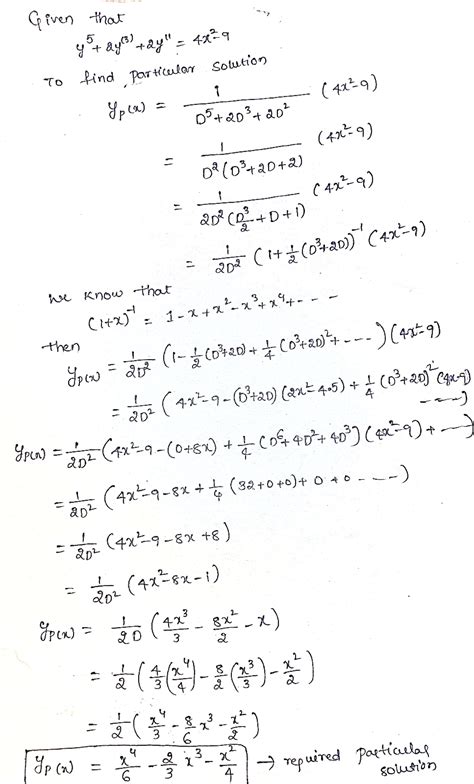 Given that
y⁵ + 2y⁽³⁾ + 2y'' = 4x² - 9
To find particular solution
yₚ(x) = 1/(D⁵ + 2D³ + 2D²) (4x² - 9)
= 1/(D²(D³ + 2D + 2)) (4x² - 9)
= 1/(2D²(D³/2 + D + 1)) (4x² - 9)
= 1/(2D²) (1 + 1/2 (D³ + 2D))⁻¹ (4x² - 9)
We know that
(1+x)⁻¹ = 1 - x + x² - x³ + x⁴ + - - -
then
yₚ(x) = 1/(2D²) (1 - 1/2 (D³ + 2D) + 1/4 (D³ + 2D)² + - - - ) (4x² - 9)
= 1/(2D²) (4x² - 9 - (D³ + 2D) (2x² - 4.5) + 1/4 (D³ + 2D)² (4x - 9) - - - )
yₚ(x) = 1/(2D²) (4x² - 9 - (0 + 8x) + 1/4 (D⁶ + 4D² + 4D³) (4x² - 9) + - - )
= 1/(2D²) (4x² - 9 - 8x + 1/4 (32 + 0 + 0) + 0 + 0 - - - )
= 1/(2D²) (4x² - 9 - 8x + 8)
= 1/(2D²) (4x² - 8x - 1)
yₚ(x) = 1/(2D) (4x³/3 - 8x²/2 - x)
= 1/2 (4/3 (x⁴/4) - 8/2 (x³/3) - x²/2)
= 1/2 (x⁴/3 - 8/6 x³ - x²/2)
yₚ(x) = x⁴/6 - 2/3 x³ - x²/4 → required particular solution